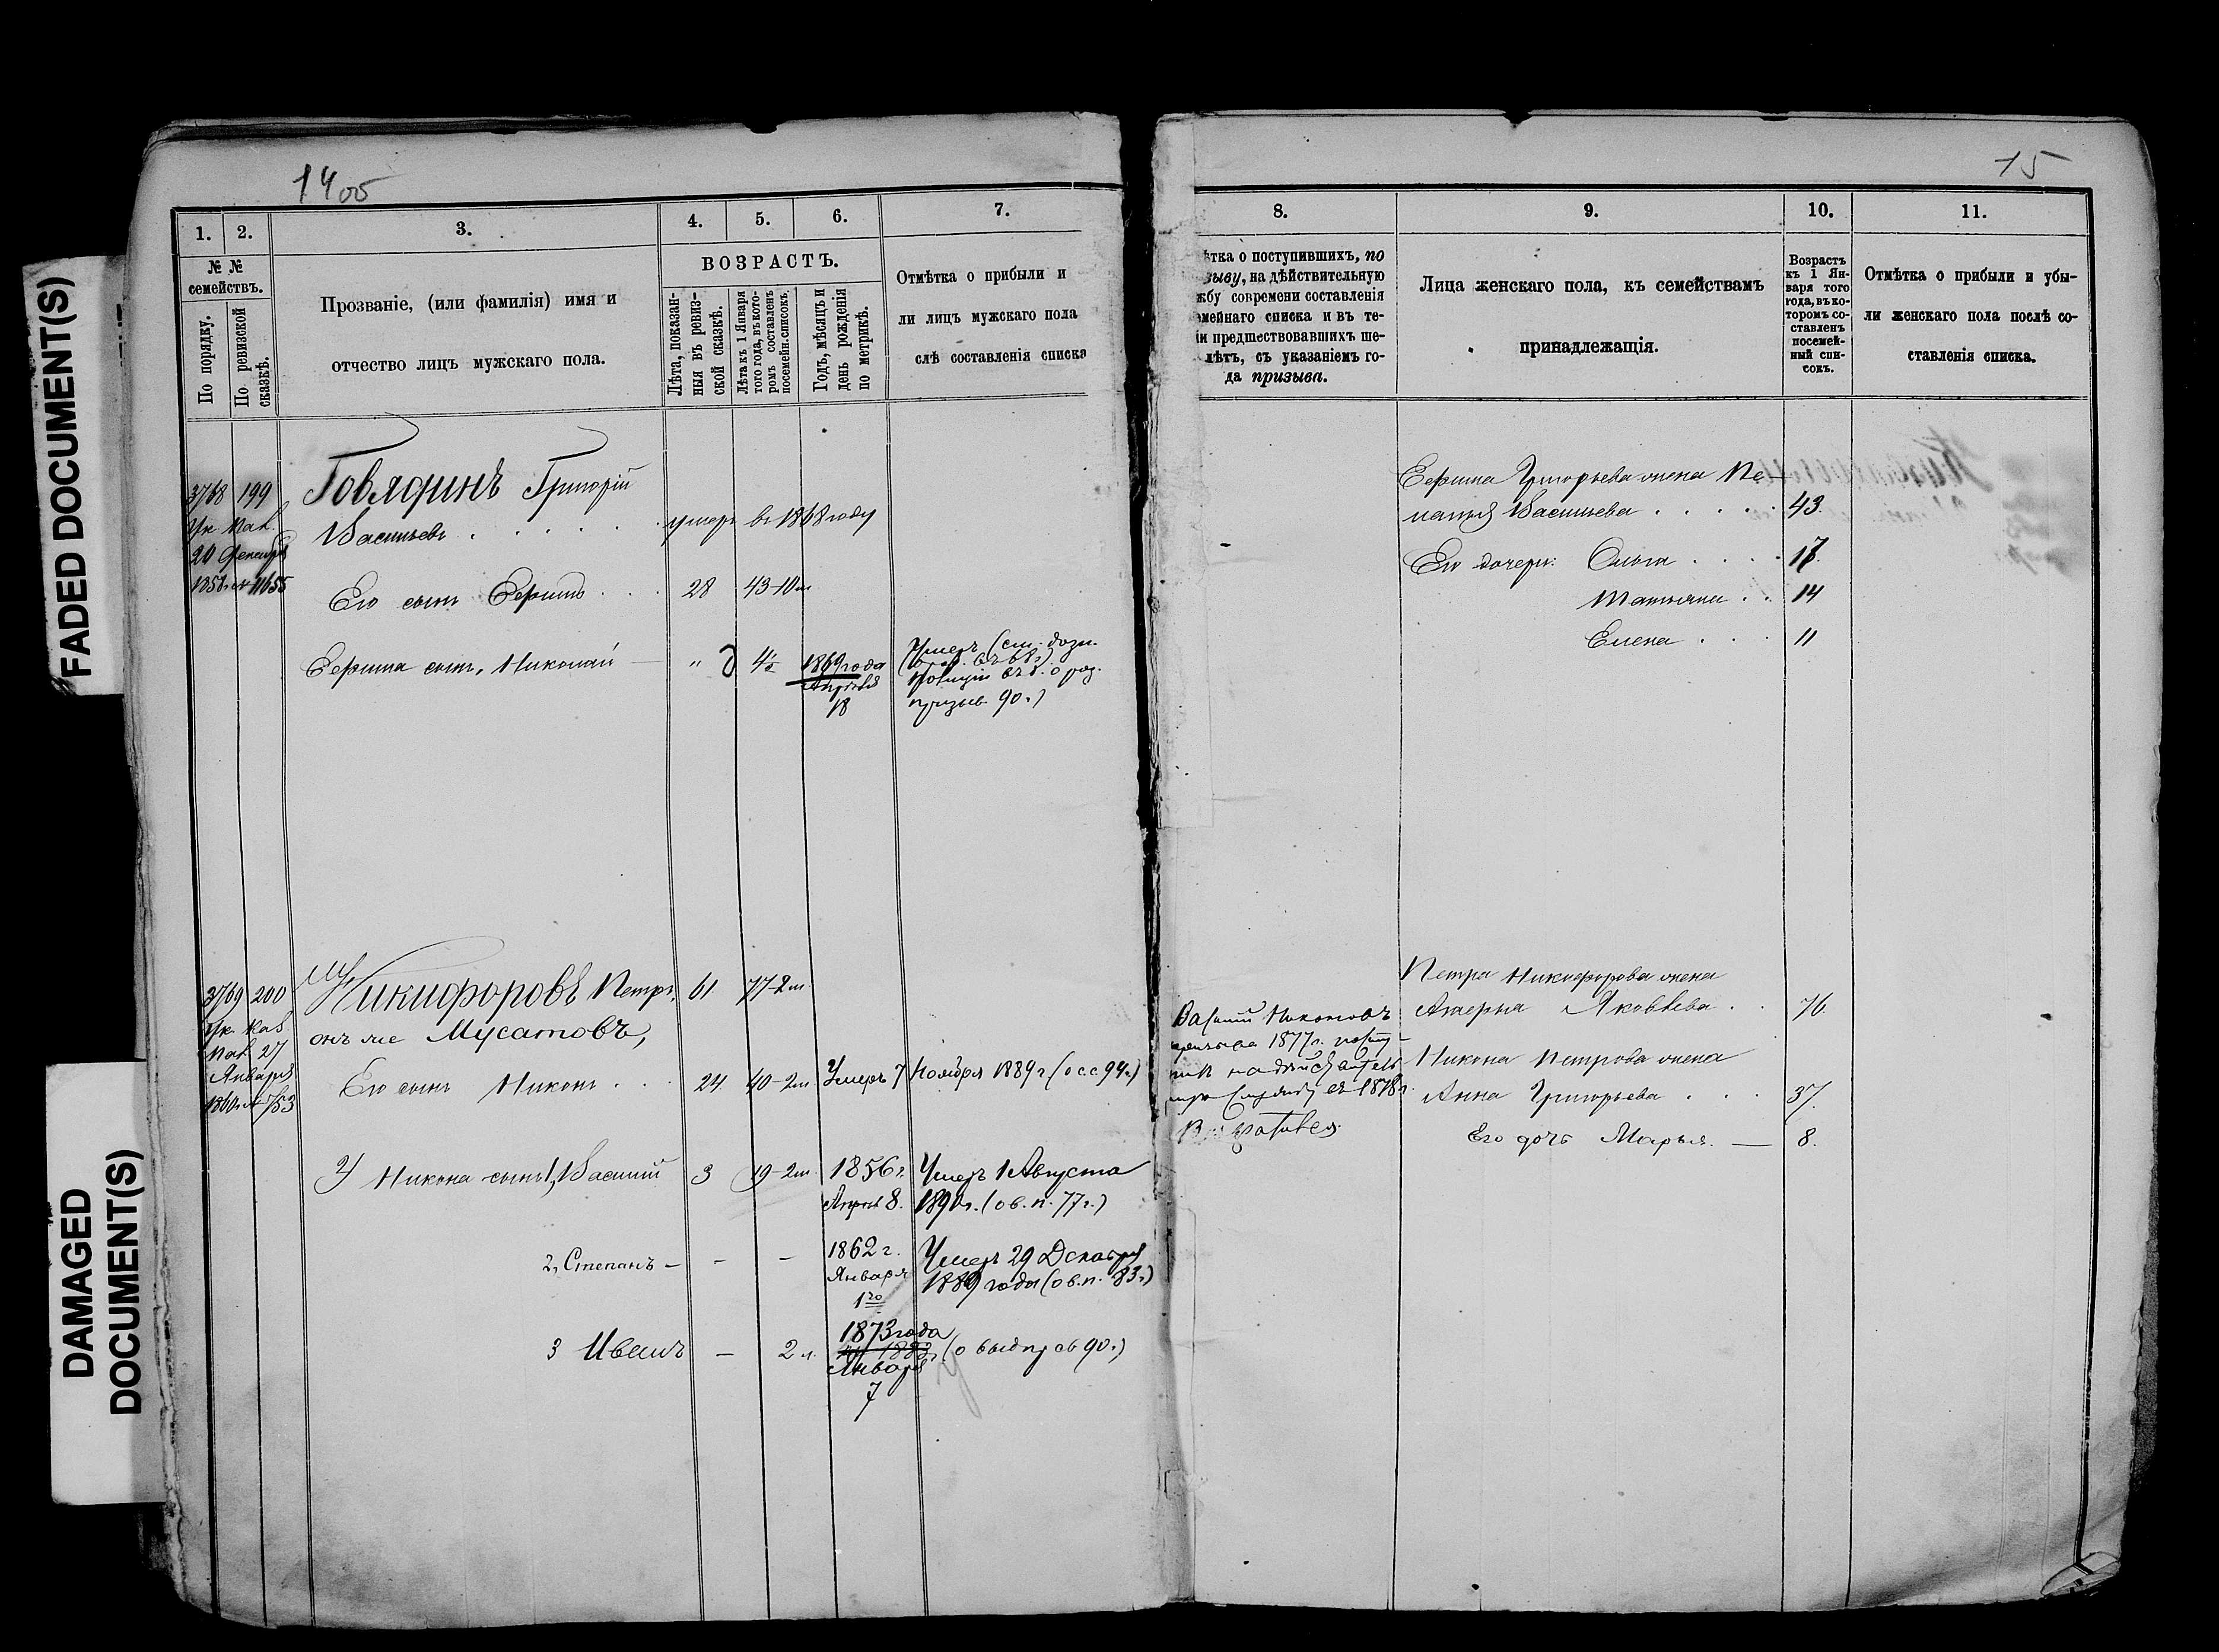 FADED DOCUMENT(S)
DAMAGED
DOCUMENT(S)
1400
1.
2.
3.
4.
5.
6.
7.
№ №
семействъ.
По порядку.
По ревизской
сказкѣ.
Прозваніе, (или фамилія) имя и
отчество лицъ мужскаго пола.
ВОЗРАСТЪ.
Лѣта, показан-
ныя въ ревиз-
ской сказкѣ.
Лѣта къ 1 Января
того года, въ кото-
ромъ составленъ
посемейн. списокъ.
Годъ, мѣсяцъ и
день рожденія
по метрикѣ.
Отмѣтка о прибыли и
ли лицъ мужскаго пола
слѣ составленія списка
3768 199
Говядинъ Григорій
Васильевъ . . . . . умеръ въ 1868 году
Его сынъ 28 43-10 м
сынъ, Николай — " 4½ 1869 года
Апрѣля
18
Умеръ
призыв. 90 г.)
3769 200
Никифоровъ Петръ, 61 77-2 м.
онъ же Мусатовъ,
27
Января
Его сынъ Никонъ . . . 24 40-2 м Умеръ 7 Ноября 1889 г
Никона сынъ 1, Василій 3 19-2 м. 1856 г. Умеръ 1 Августа
Апрѣля 8. (о в. п. 77 г.)
2, Степанъ — – – 1862 г. Умеръ 29 Декабря
Января 1889 года (о в. п. 83 г.)
1го
3 Иванъ – 2 л. 1873 года
Января
7
15
8.
9.
10.
11.
ѣтка о поступившихъ, по
зыву, на дѣйствительную
жбу современи составленія
емейнаго списка и въ те-
и предшествовавшихъ ше-
лѣтъ, съ указаніемъ го-
да призыва.
Лица женскаго пола, къ семействамъ
принадлежащія.
Возрастъ
къ 1 Ян-
варя того
года, въ ко-
торомъ со-
ставленъ
посемей-
ный спи-
сокъ.
Отмѣтка о прибыли и убы-
ли женскаго пола послѣ со-
ставленія списка.
Григорьева жена Пе-
лагея Васильева . . . . . 43.
Его дочери: Ольга . . . . 17.
Татьяна . . 14
Елена . . . 11
Василій Никоновъ
призыва 1877 г.
въ 1878 г.
Петра Никифорова жена
Яковлева . . 76.
Никона Петрова жена
Анна Григорьева . . . 37.
Его дочь Марья. — 8.